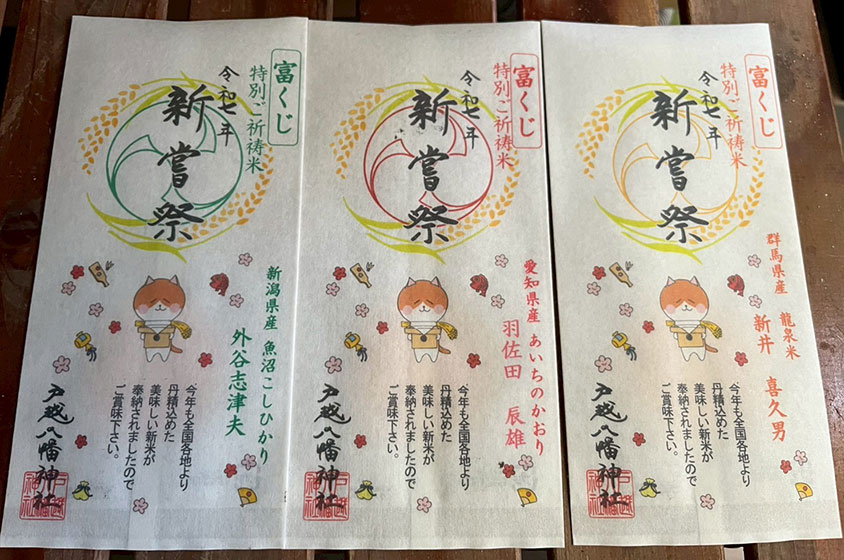 富くじ
特別ご祈祷米
令和七年
新嘗祭
新潟県産 魚沼こしひかり
外谷志津夫
今年も全国各地より
丹精込めた
美味しい新米が
奉納されましたので
ご賞味下さい。
戸越八幡神社
富くじ
特別ご祈祷米
令和七年
新嘗祭
愛知県産 あいちのかおり
羽佐田 辰雄
今年も全国各地より
丹精込めた
美味しい新米が
奉納されましたので
ご賞味下さい。
戸越八幡神社
富くじ
特別ご祈祷米
令和七年
新嘗祭
群馬県産 龍泉米
新井 喜久男
今年も全国各地より
丹精込めた
美味しい新米が
奉納されましたので
ご賞味下さい。
戸越八幡神社